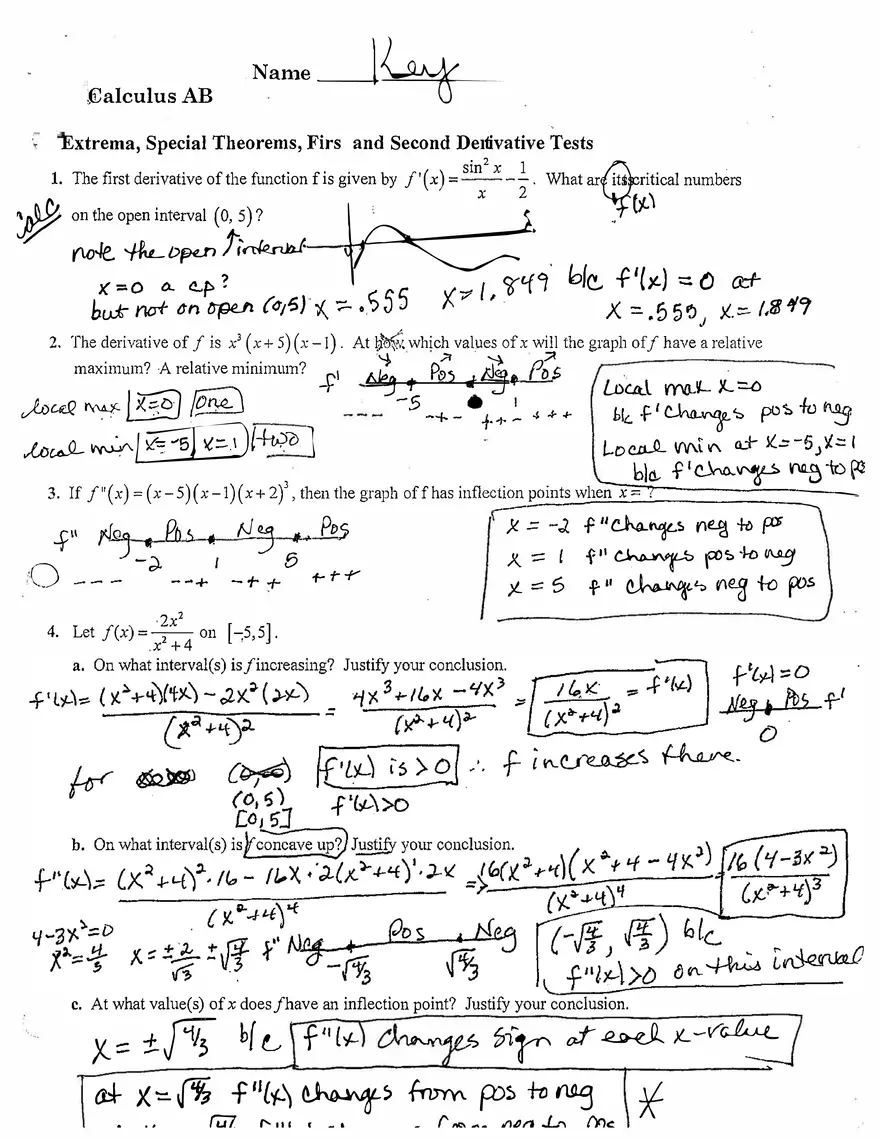 Name Key
Calculus AB
Extrema, Special Theorems, Firs and Second Derivative Tests
1. The first derivative of the function f is given by f'(x) = sin² x / x − 1/2. What are its critical numbers
f(x)
calc on the open interval (0, 5)?
note the open ↑ interval
5
x=0 a cp?
but not on open (0,5) x = .555 x=1.849 b/c f'(x) = 0 at
x = .555, x = 1.849
2. The derivative of f is x³(x+5)(x−1). At which values of x will the graph of f have a relative
maximum? A relative minimum?
f' Neg Pos Neg Pos
-5 1
--- -+- ++- +++
local max x=0 one
local min x=-5 x=1 two
Local max x=0
b/c f' changes pos to neg
Local min at x=-5, x=1
b/c f' changes neg to pos
3. If f"(x) = (x−5)(x−1)(x+2)³, then the graph of f has inflection points when x = ?
f" Neg Pos Neg Pos
-2 1 5
--- --+ -++ +++
x = -2 f" changes neg to pos
x = 1 f" changes pos to neg
x = 5 f" changes neg to pos
4. Let f(x) = 2x² / x² + 4 on [−5,5].
a. On what interval(s) is f increasing? Justify your conclusion.
f'(x) = (x²+4)(4x) − 2x²(2x) / (x²+4)² = 4x³+16x−4x³ / (x²+4)² = 16x / (x²+4)² = f'(x)
f'(x)=0
Neg Pos f'
0
for f'(x) is >0 ∴ f increases there.
(0,5) f'(x)>0
[0,5]
b. On what interval(s) is f concave up? Justify your conclusion.
f"(x) = (x²+4)²·16 − 16x·2(x²+4)'·2x / (x²+4)⁴ => 16(x²+4)(x²+4−4x²) / (x²+4)⁴ = 16(4−3x²) / (x²+4)³
4−3x²=0
x²=4/3 x = ±2/√3 ±√4/3 f" Neg Pos Neg
-√4/3 √4/3
(-√4/3, √4/3) b/c
f"(x)>0 on this interval
c. At what value(s) of x does f have an inflection point? Justify your conclusion.
x = ±√4/3 b/c f"(x) changes sign at each x-value
at x=√4/3 f"(x) changes from pos to neg